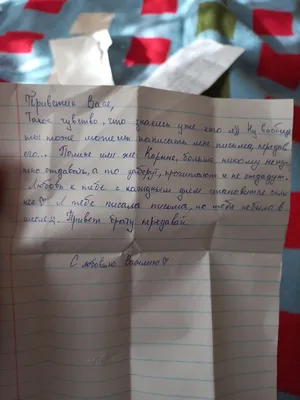 Приветик Вася,
Такое чувство, что знались уже кто л)) Ну вообще
ты тоже можешь написать мне письмо, передав
его.. Полине или же Карине, больше никому не нуж
но отдавать, а то заберут, прочитают и не отдадут.
Любовь к тебе с каждым днем становится силь
нее♡ Я тебе писала письма, но тебя не было в
школе Привет брату передавай
С любовью Василина♡